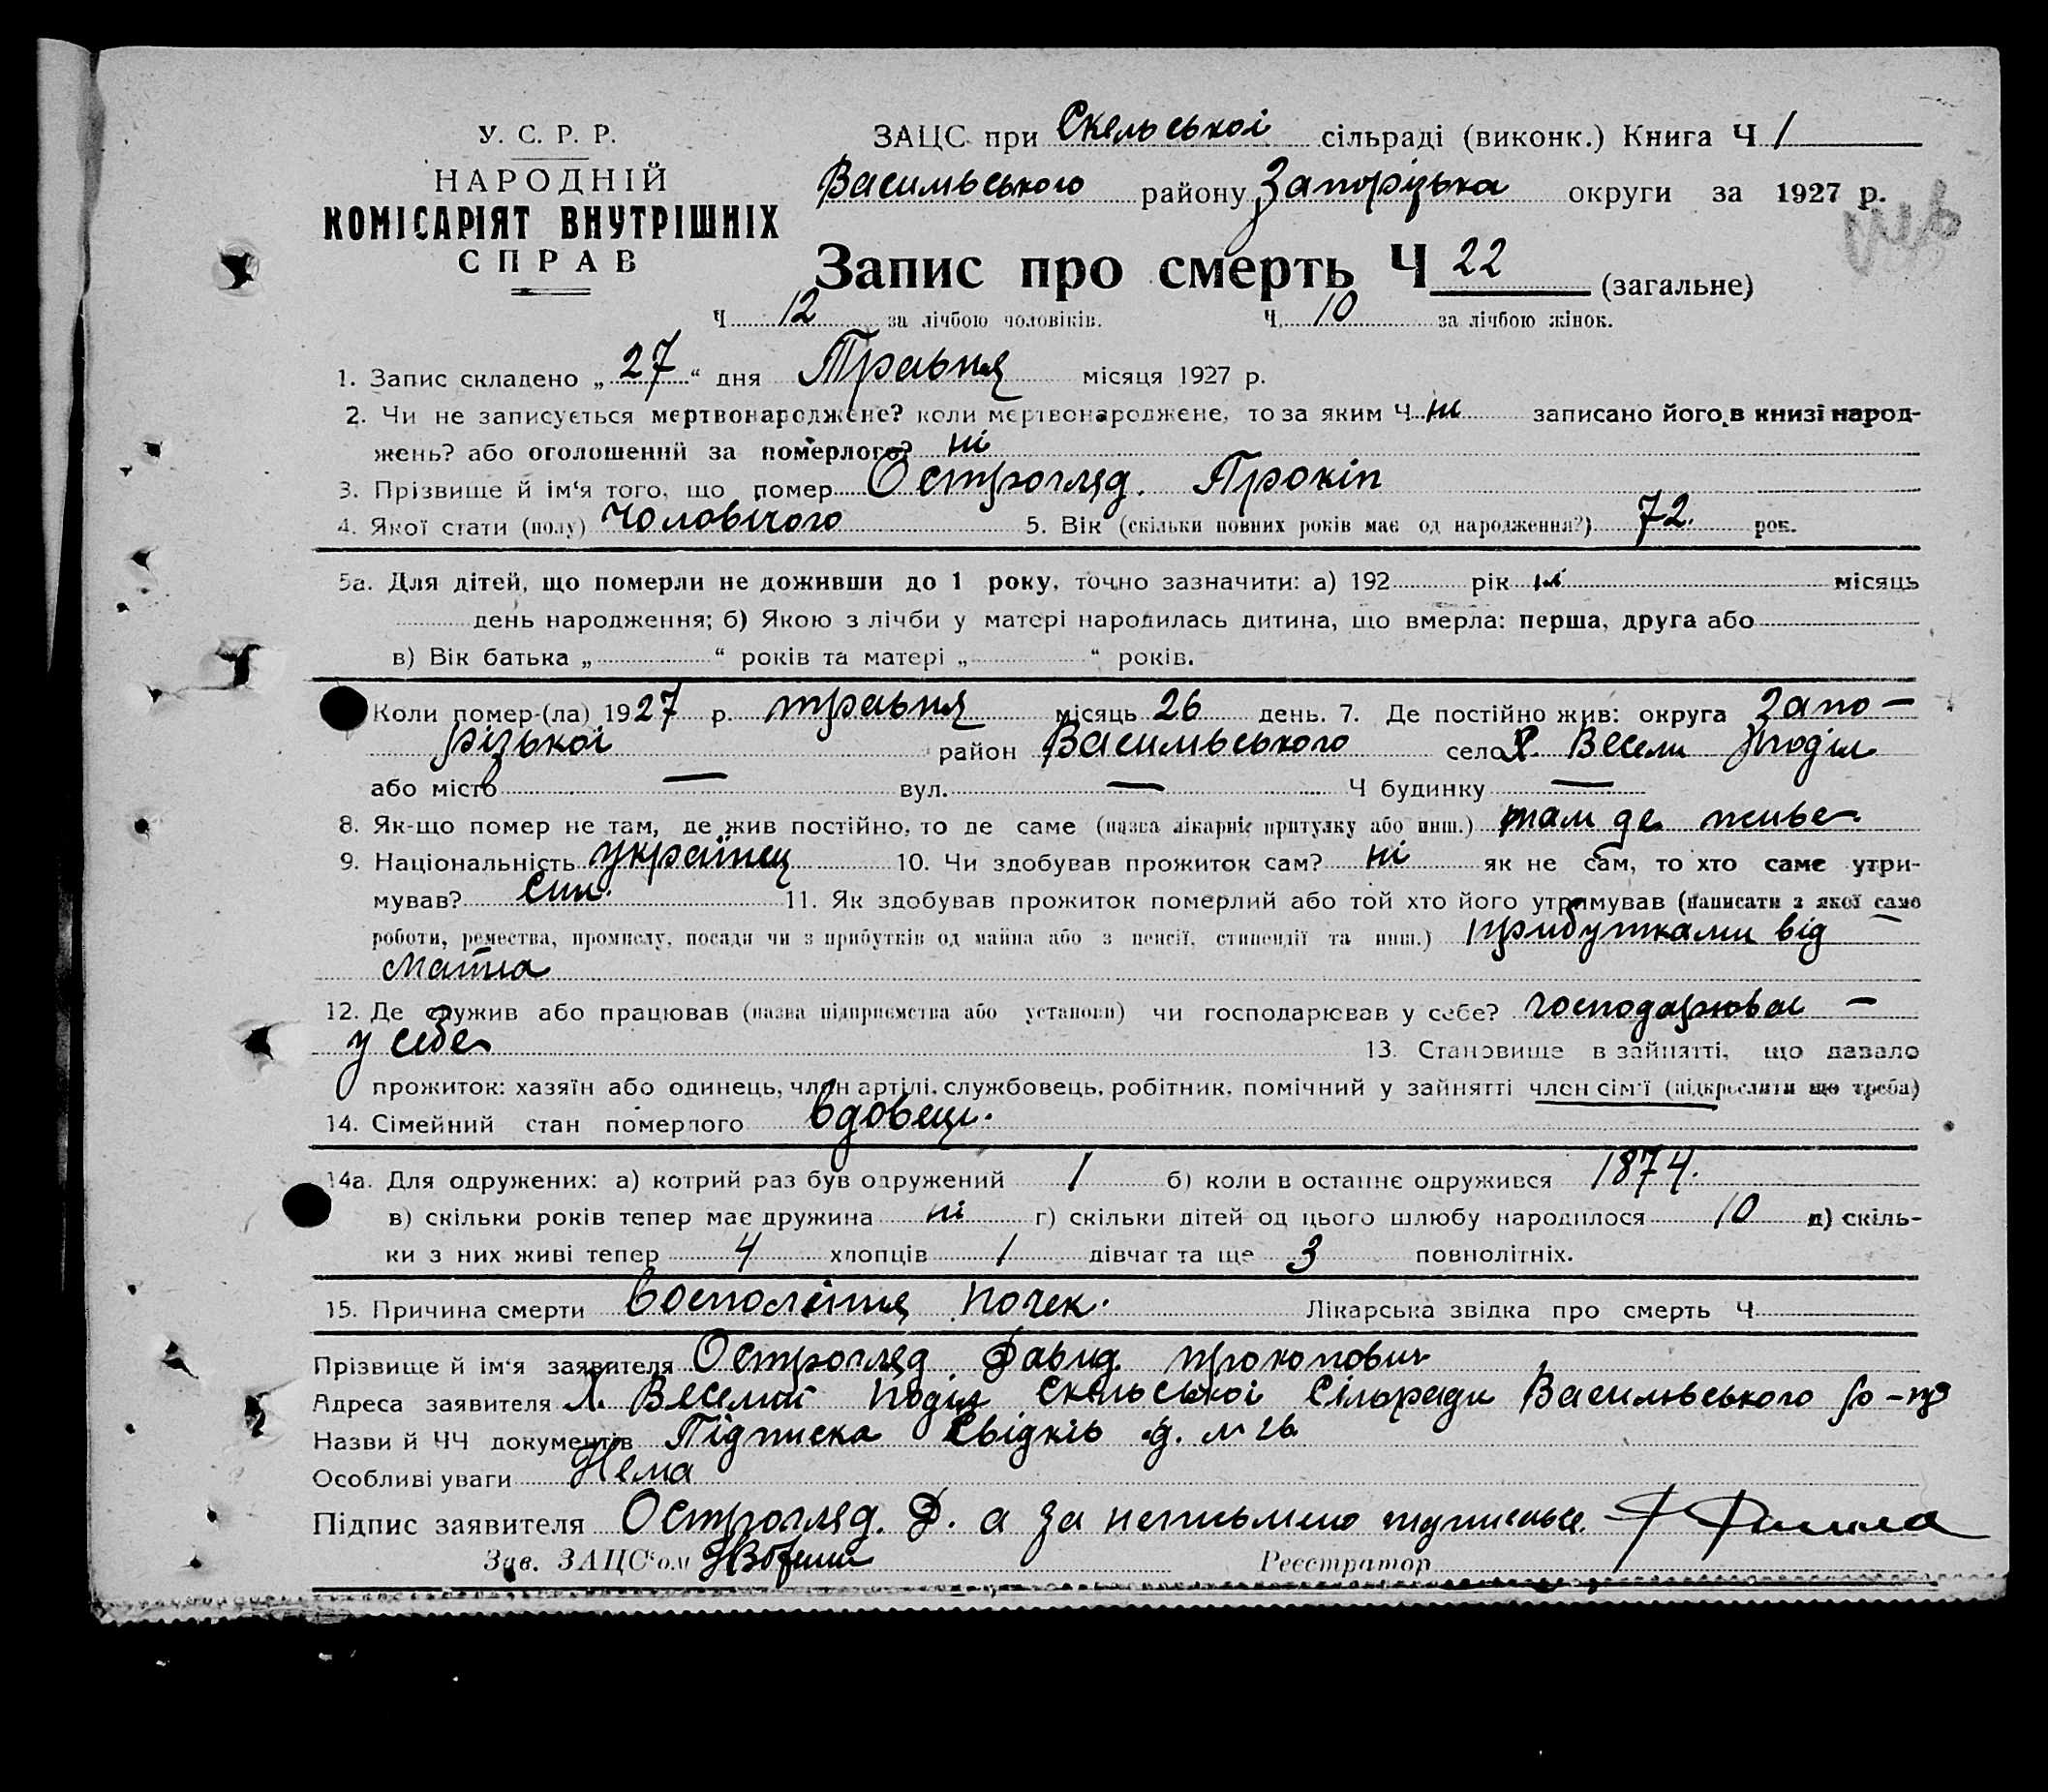 У. С. Р. Р.
НАРОДНІЙ
КОМІСАРІЯТ ВНУТРІШНІХ
СПРАВ
ЗАЦС при Скельської сільраді (виконк.) Книга Ч 1
Васильського району Запоріzька округи за 1927 р.
Запис про смерть Ч 22 (загальне)
Ч 12 за лічбою чоловіків. Ч. 10 за лічбою жінок.
1. Запис складено „27“ дня Травня місяця 1927 р.
2. Чи не записується мертвонароджене? коли мертвонароджене, то за яким Ч ні записано його в книзі народ-
жень? або оголошений за померлого? ні
3. Прізвище й ім‘я того, що помер Острогляд. Прокіп
4. Якої стати (полу) чоловічого 5. Вік (скільки повних років має од народження?) 72. рок.
5а. Для дітей, що померли не доживши до 1 року, точно зазначити: а) 192 рік місяць
день народження; б) Якою з лічби у матері народилась дитина, що вмерла: перша, друга або
в) Вік батька „ “ років та матері „ “ років.
Коли помер-(ла) 1927 р. травня місяць 26 день. 7. Де постійно жив: округа Запо-
різької район Васильського село Х. Весели Поділ
або місто — вул. — Ч будинку —
8. Як-що помер не там, де жив постійно, то де саме (назва лікарні, притулку або инш.) там де живе
9. Національність українец 10. Чи здобував прожиток сам? ні як не сам, то хто саме утри-
мував? Син. 11. Як здобував прожиток померлий або той хто його утримував (написати з якої само
роботи, ремества, промислу, посади чи з прибутків од майна або з пенсії, стипендії та инш.) прибутками від
майна
12. Де служив або працював (назва підприємства або установи) чи господарював у себе? господарював -
у себе 13. Становище в зайнятті, що давало
прожиток: хазяїн або одинець, член артілі, службовець, робітник, помічний у зайнятті член сім‘ї (підкреслити що треба)
14. Сімейний стан померлого вдовець.
14а. Для одружених: а) котрий раз був одружений 1 б) коли в останнє одружився 1874.
в) скільки років тепер має дружина ні г) скільки дітей од цього шлюбу народилося 10 д) скіль-
ки з них живі тепер 4 хлопців 1 дівчат та ще 3 повнолітніх.
15. Причина смерти восполения почек. Лікарська звідка про смерть Ч
Прізвище й ім‘я заявителя Острогляд Давид Прокопович
Адреса заявителя Х. Веселий Поділ Скельської Сільради Васильського р-на
Назви й ЧЧ документів Підписка Свідків
Особливі уваги Нема
Підпис заявителя Острогляд. Д. а за
Зав. ЗАЦС‘ом Реєстратор